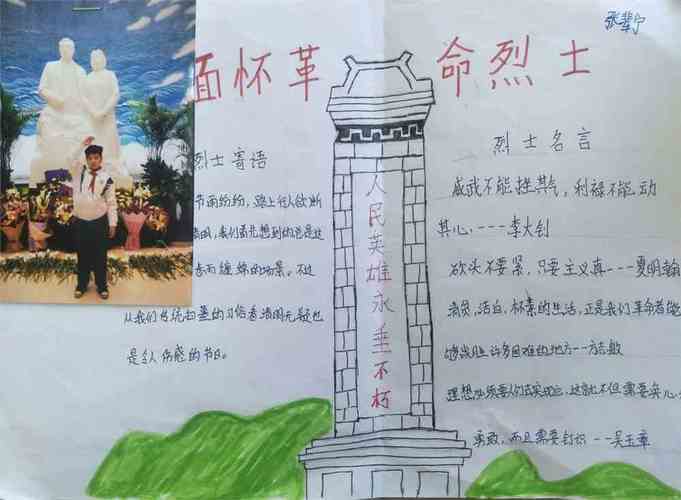 张辈宁
缅怀革命烈士
烈士寄语
节雨纷纷，路上行人欲断
清明，我们首先想到的总是这
去而缠绵的场景。不过
从我们传统扫墓的习俗看清明无疑也
是令人伤感的节日。
人民英雄永垂不朽
烈士名言
威武不能挫其气，利禄不能动
其心，----李大钊
砍头不要紧，只要主义真---夏明翰
清贫，洁白，朴素的生活，正是我们革命者能
够战胜许多困难的地方--方志敏
理想必须要人们去实现它，这就不但需要决心
勇敢，而且需要知识--吴玉章